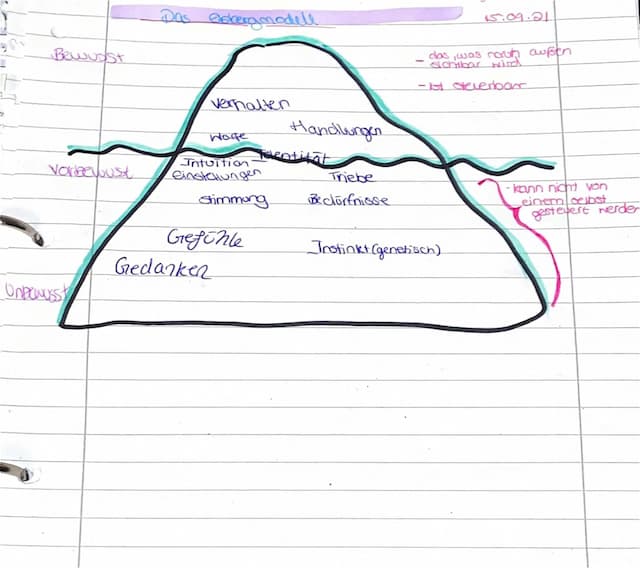 Das Eisbergmodell
15.09.21
Bewusst
- das, was nach außen
sichtbar wird
- Ist steuerbar
Verhalten
Handlungen
Worte
Identität
Vorbewusst
Intuition
Einstellungen
Triebe
Stimmung
Bedürfnisse
- kann nicht von
einem selbst
gesteuert werden
Gefühle
Instinkt (genetisch)
Gedanken
Unbewusst